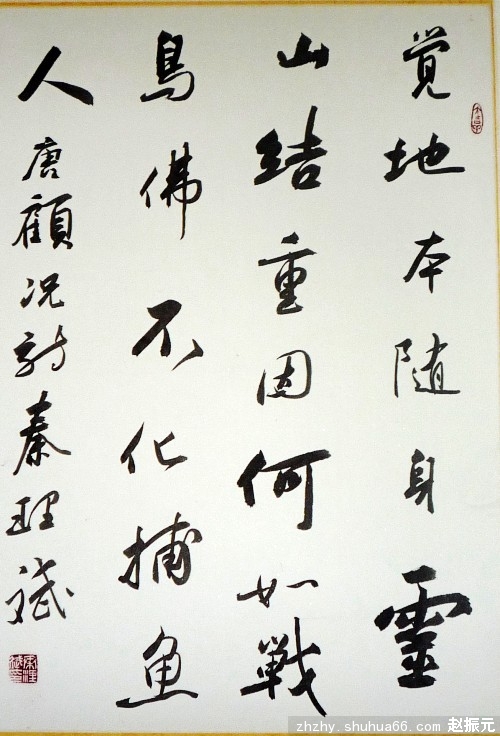 觉地本随身靈
山结重因何如戰
鳥佛不化捕鱼
人 唐顧况詩秦理斌
zhzhy.shuhua66.com 赵振元